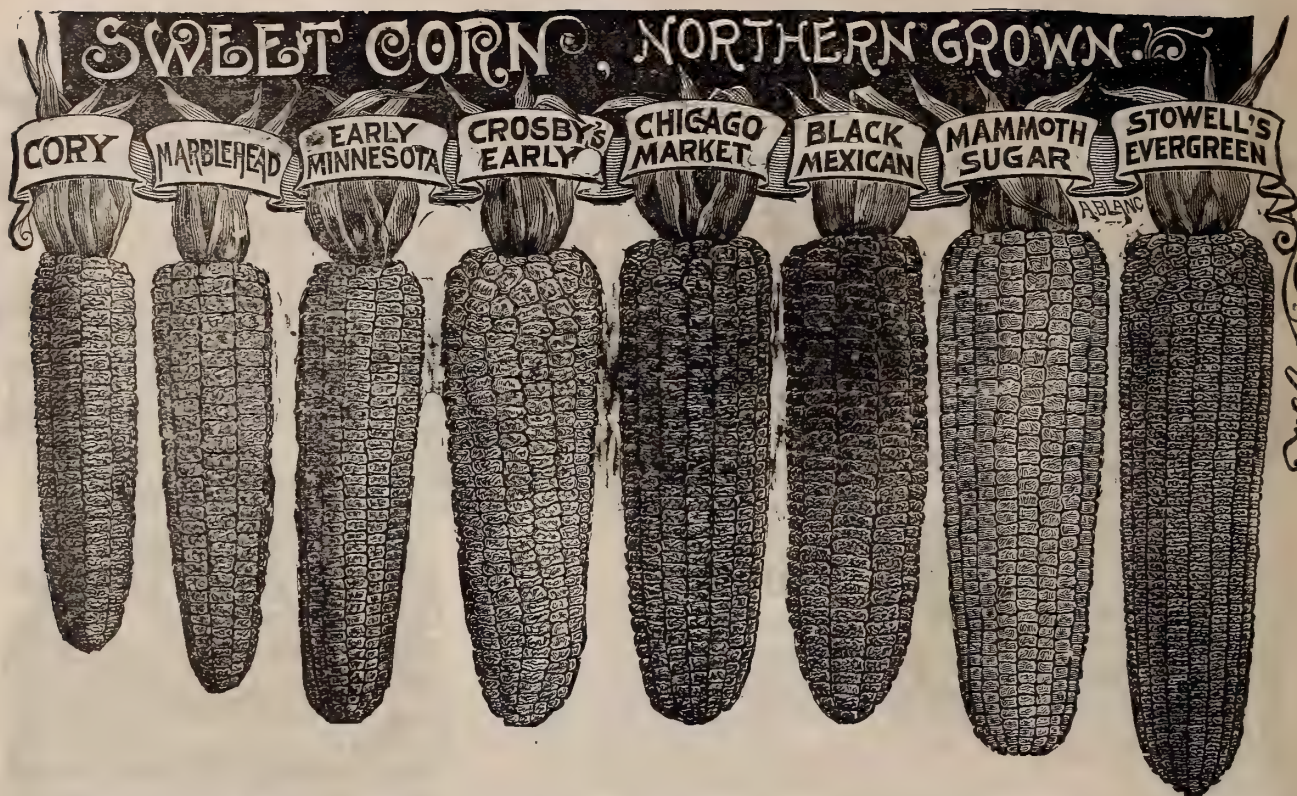 SWEET CORN, NORTHERN GROWN.
CORY
MARBLEHEAD
EARLY
MINNESOTA
CROSBY'S
EARLY
CHICAGO
MARKET
BLACK
MEXICAN
MAMMOTH
SUGAR
STOWELL'S
EVERGREEN
A.BLANC